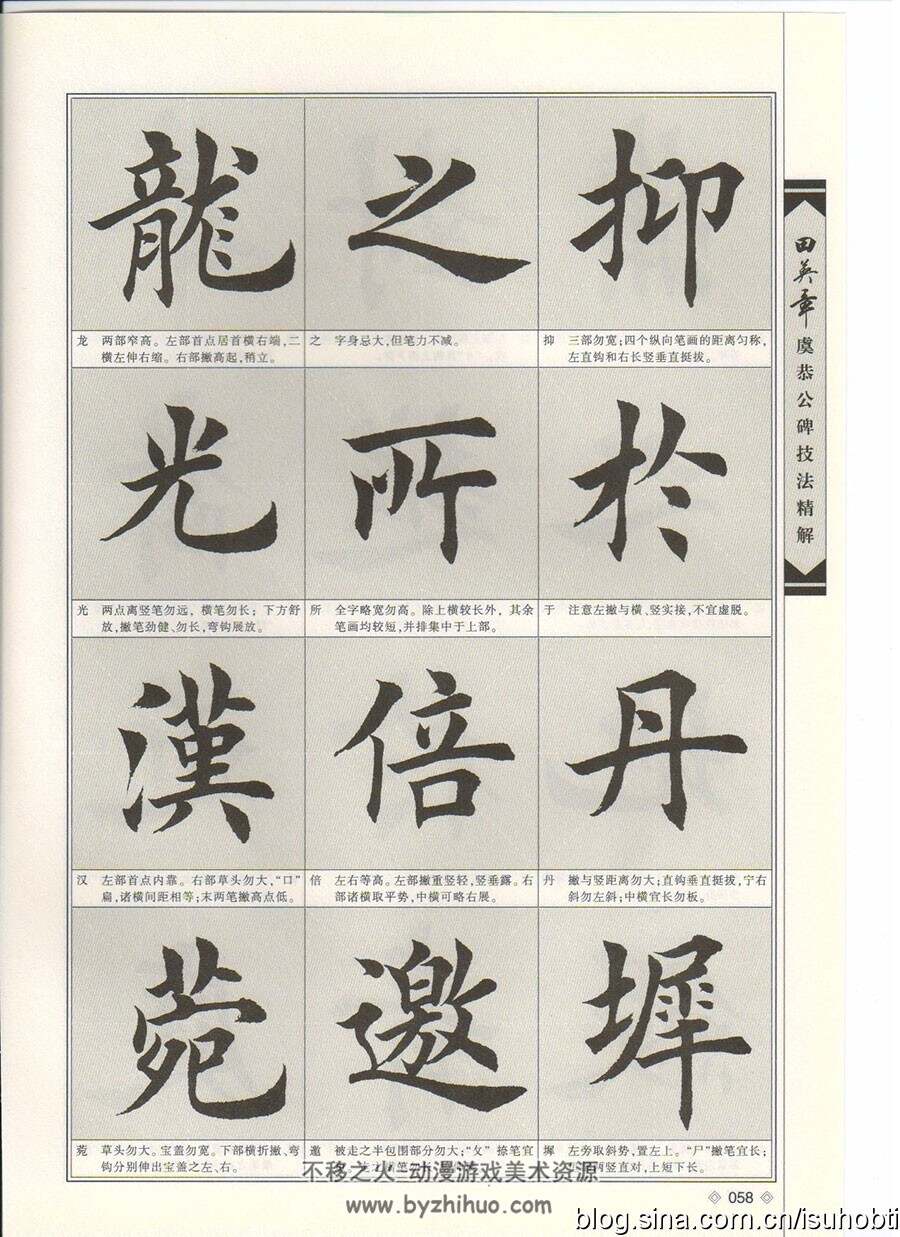 龍
之
抑
龙 两部窄高。左部首点居首横右端,二
横左伸右缩。右部撇高起,稍立。
之 字身忌大,但笔力不减。
抑 三部勿宽;四个纵向笔画的距离匀称,
左直钩和右长竖垂直挺拔。
光
所
於
光 两点离竖笔勿远,横笔勿长;下方舒
放,撇笔劲健、勿长,弯钩展放。
所 全字略宽勿高。除上横较长外,其余
笔画均较短,并排集中于上部。
于 注意左撇与横、竖实接,不宜虚脱。
漢
倍
丹
汉 左部首点内靠。右部草头勿大,“口”
扁,诸横间距相等;末两笔撇高点低。
倍 左右等高。左部撇重竖轻,竖垂露。右
部诸横取平势,中横可略右展。
丹 撇与竖距离勿大;直钩垂直挺拔,宁右
斜勿左斜;中横宜长勿板。
菀
邀
墀
菀 草头勿大。宝盖勿宽。下部横折撇、弯
钩分别伸出宝盖之左、右。
邀 被走之半包围部分勿大;“攵”捺笔宜
墀 左旁取斜势,置左上。“尸”撇笔宜长;
两竖直对,上短下长。
田英章
虞恭公碑技法精解
不移之火-动漫游戏美术资源
www.byzhihuo.com
058
blog.sina.com.cn/isuhobti